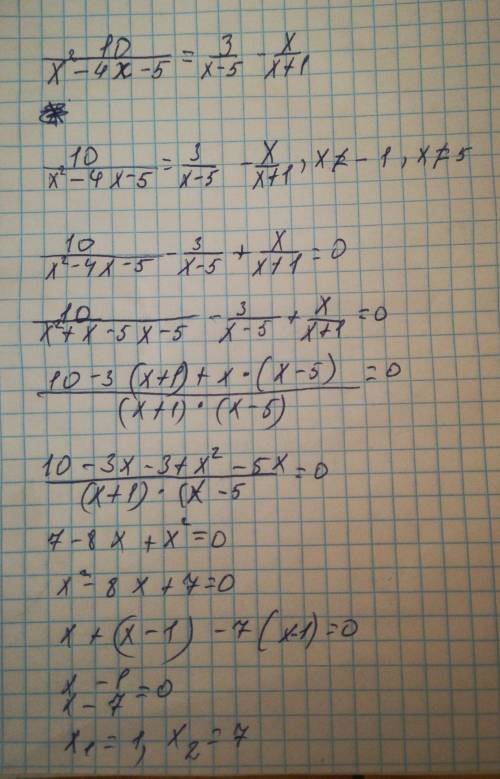 10/(x² - 4x - 5) = 3/(x-5) - x/(x+1)
10/(x² - 4x - 5) = 3/(x-5) - x/(x+1), x ≠ -1, x ≠ 5
10/(x² - 4x - 5) - 3/(x-5) + x/(x+1) = 0
10/(x² + x - 5x - 5) - 3/(x-5) + x/(x+1) = 0
(10 - 3(x+1) + x·(x-5))/((x+1)·(x-5)) = 0
(10 - 3x - 3 + x² - 5x)/((x+1)·(x-5 = 0
7 - 8x + x² = 0
x² - 8x + 7 = 0
x + (x-1) - 7(x-1) = 0
x - 1
x - 7 = 0
x₁ = 1, x₂ = 7